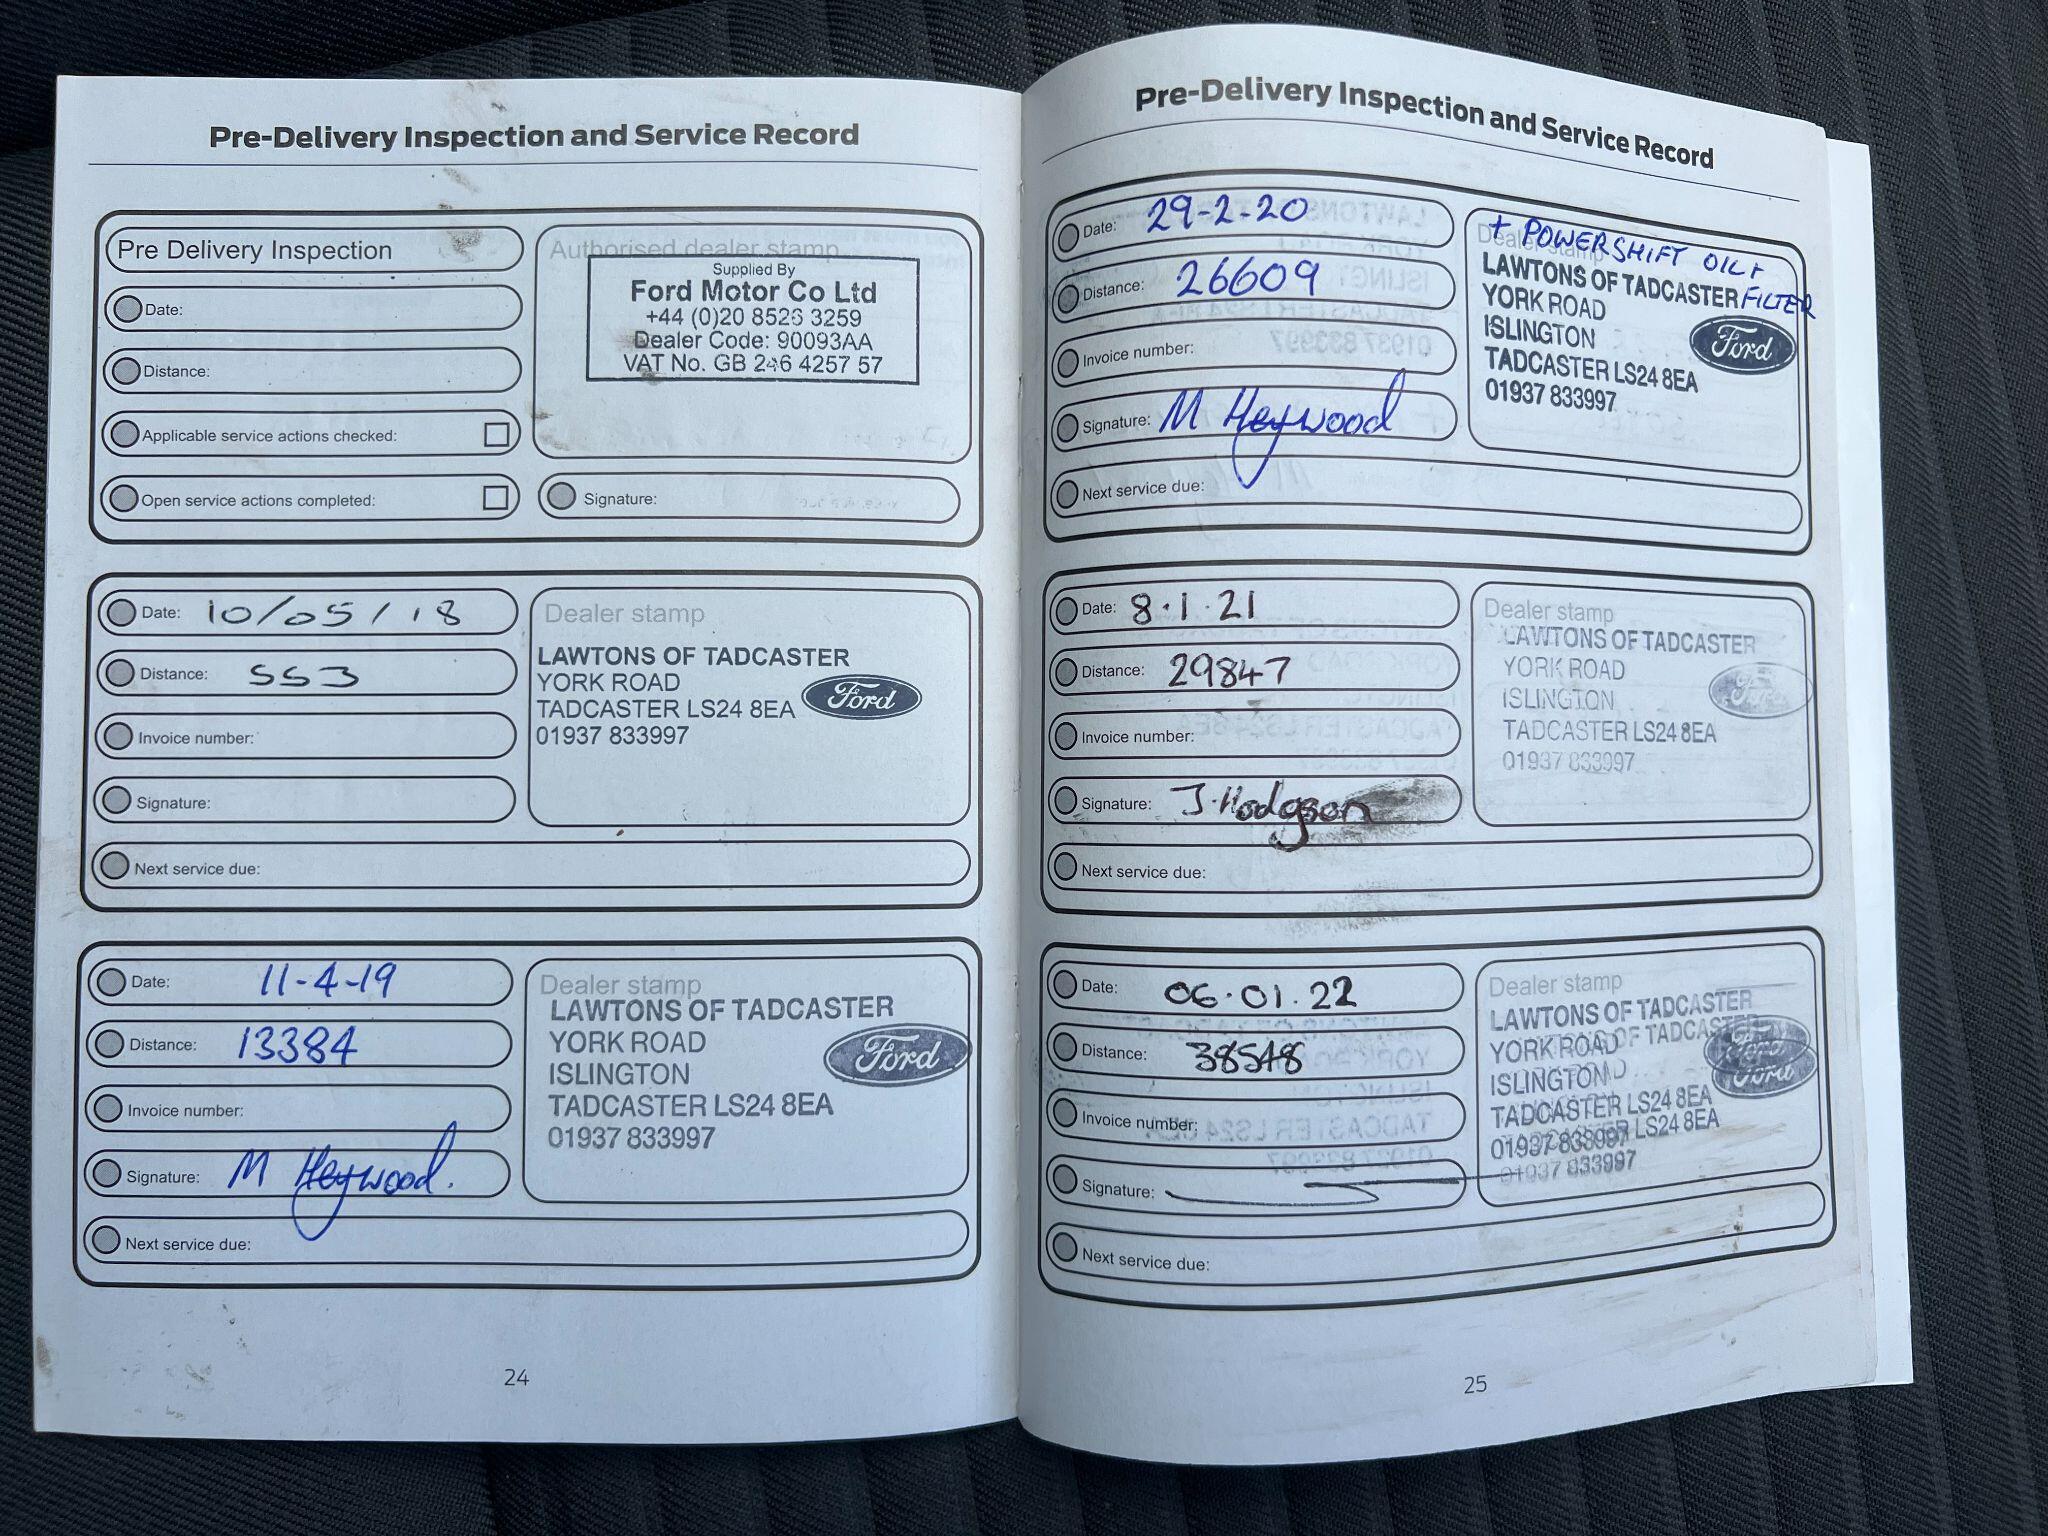 Pre-Delivery Inspection and Service Record
Pre Delivery Inspection
Date:
Distance:
Applicable service actions checked:
Open service actions completed:
Authorised dealer stamp
Supplied By
Ford Motor Co Ltd
+44 (0)20 8526 3259
Dealer Code: 90093AA
VAT No. GB 246 4257 57
Signature:
Date: 10/05/18
Distance: 553
Invoice number:
Signature:
Next service due:
Dealer stamp
LAWTONS OF TADCASTER
YORK ROAD
TADCASTER LS24 8EA
01937 833997
Ford
Date: 11-4-19
Distance: 13384
Invoice number:
Signature: M Heywood.
Next service due:
Dealer stamp
LAWTONS OF TADCASTER
YORK ROAD
ISLINGTON
TADCASTER LS24 8EA
01937 833997
Ford
24
Pre-Delivery Inspection and Service Record
Date: 29-2-20
Distance: 26609
Invoice number:
Signature: M Heywood
Next service due:
Dealer stamp
+ POWERSHIFT OIL +
FILTER
LAWTONS OF TADCASTER
YORK ROAD
ISLINGTON
TADCASTER LS24 8EA
01937 833997
Ford
Date: 8.1.21
Distance: 29847
Invoice number:
Signature: J. Hodgson
Next service due:
Dealer stamp
LAWTONS OF TADCASTER
YORK ROAD
ISLINGTON
TADCASTER LS24 8EA
01937 833997
Ford
Date: 06.01.22
Distance: 38548
Invoice number:
Signature:
Next service due:
Dealer stamp
LAWTONS OF TADCASTER
YORK ROAD
ISLINGTON
TADCASTER LS24 8EA
01937 833997
Ford
25